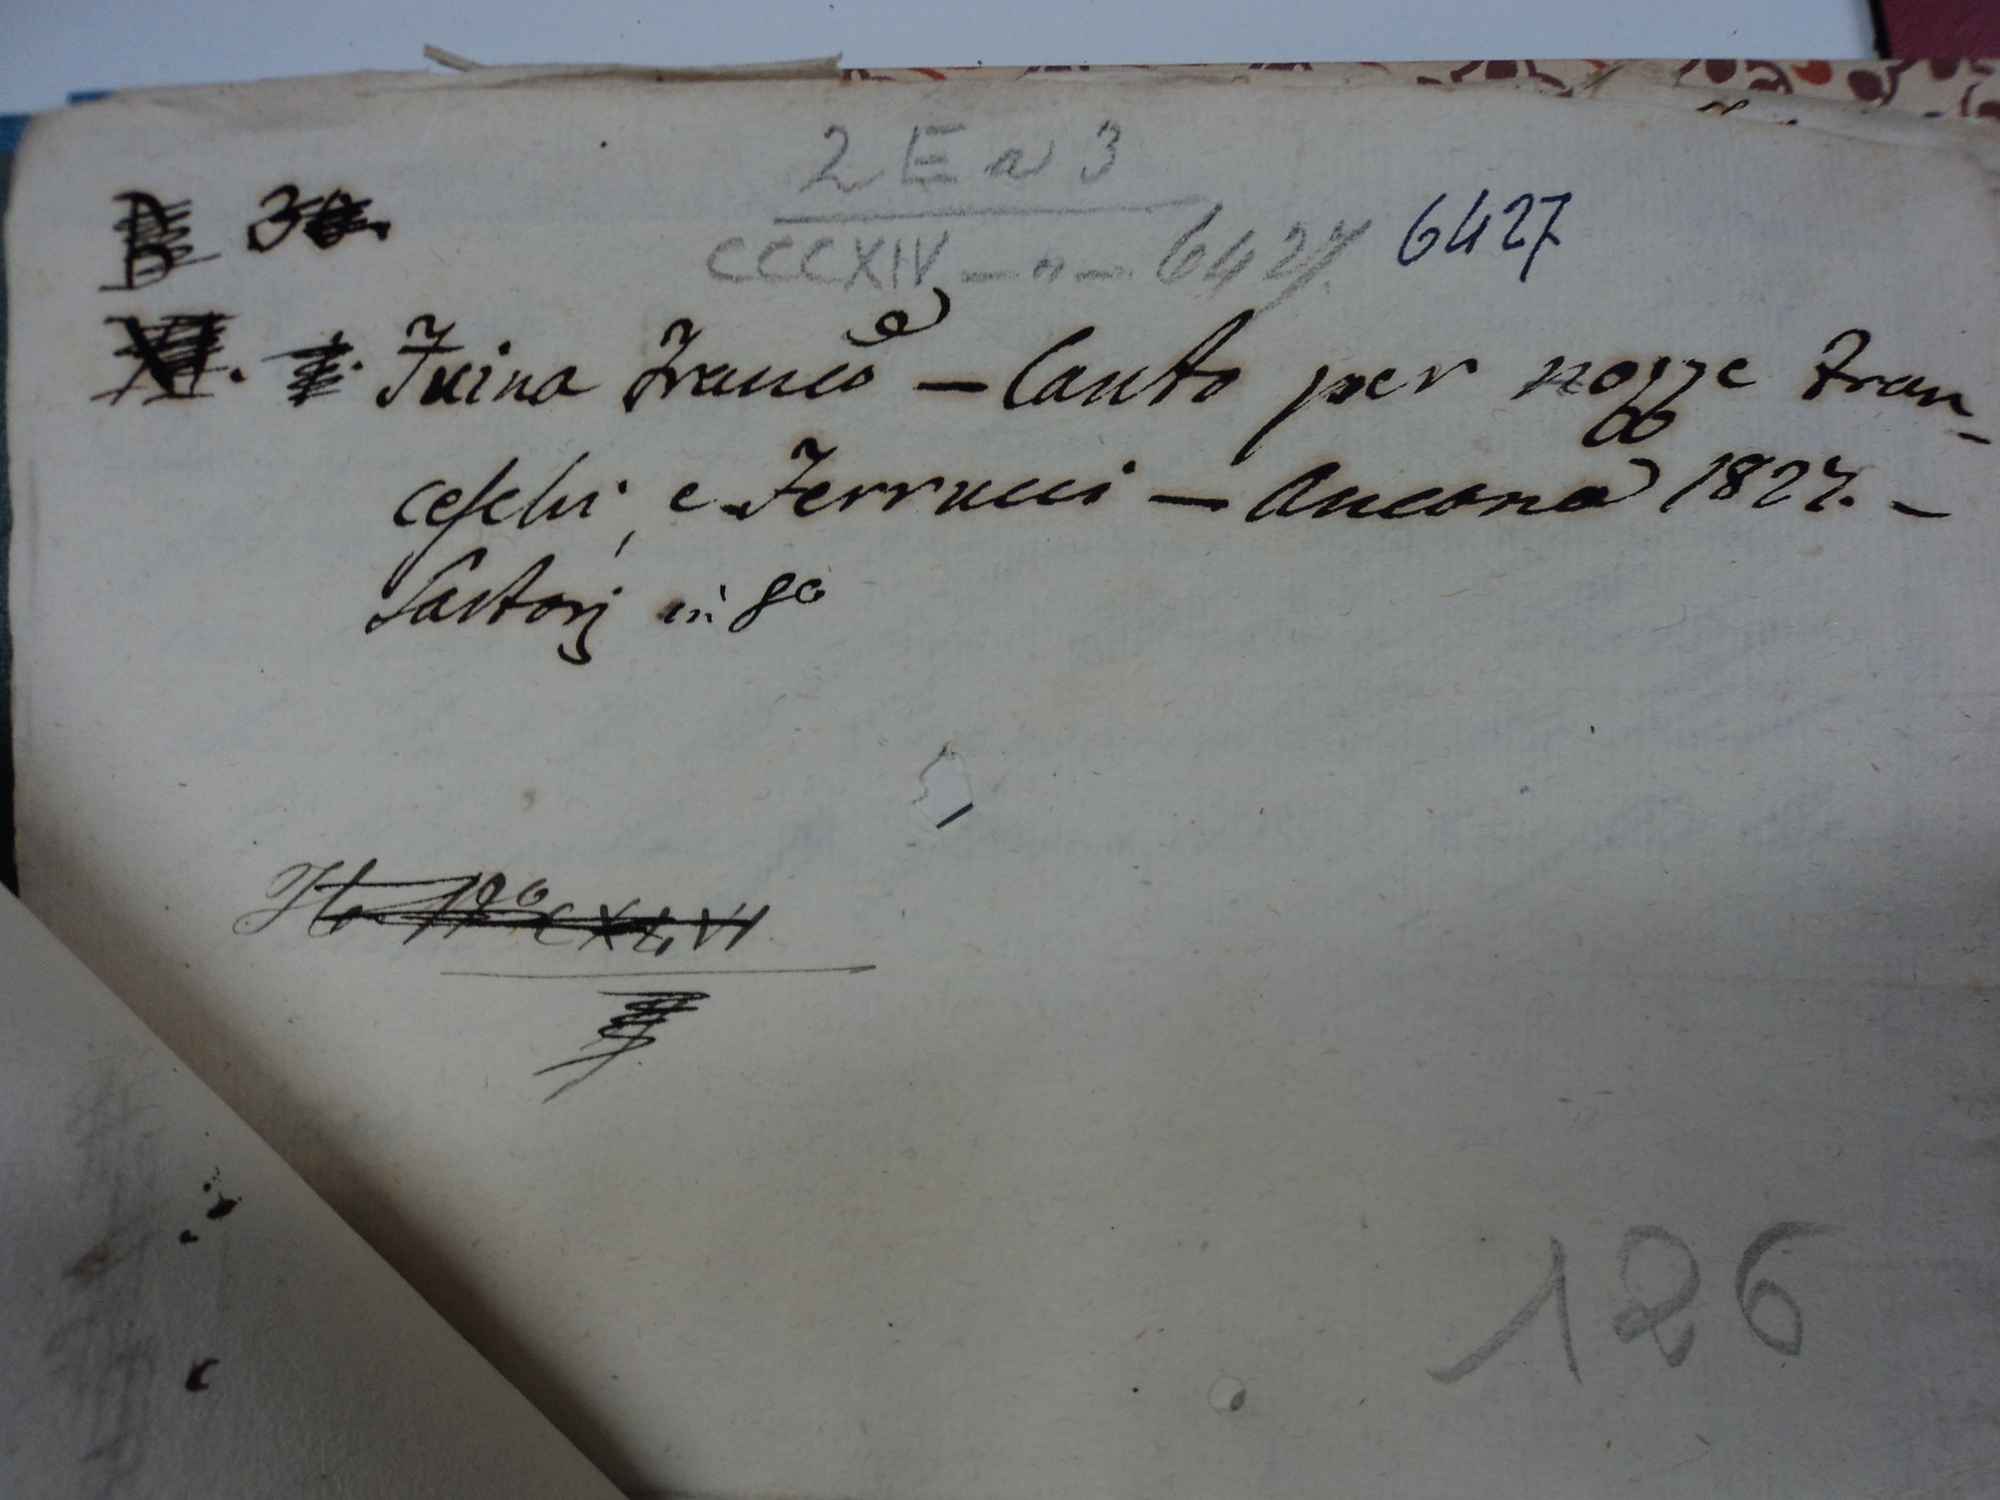 2 E a 3
B 30.
CCCXIV — a — 6427. 6427
XI. Fuina Franco — Canto per nozze Fran-
ceschi, e Ferrucci — Ancona 1827. —
Sartorj in 8o
CXLVI
126